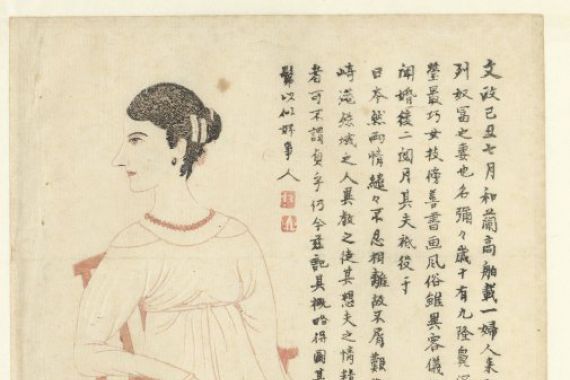 文政己丑七月和蘭商舶載一婦人来
列奴冨之妻也名彌々歳十有九隆鼻深
瑩最巧女技傍善書画風俗雖異容儀
聞婚後二閲月其夫祗役于
日本然両情繾々不忍相離故不屑艱
崎港絶域之人異教之徒其想夫之情精
者可不謂貞乎仍今茲記其概略得図其
髴以似好事人